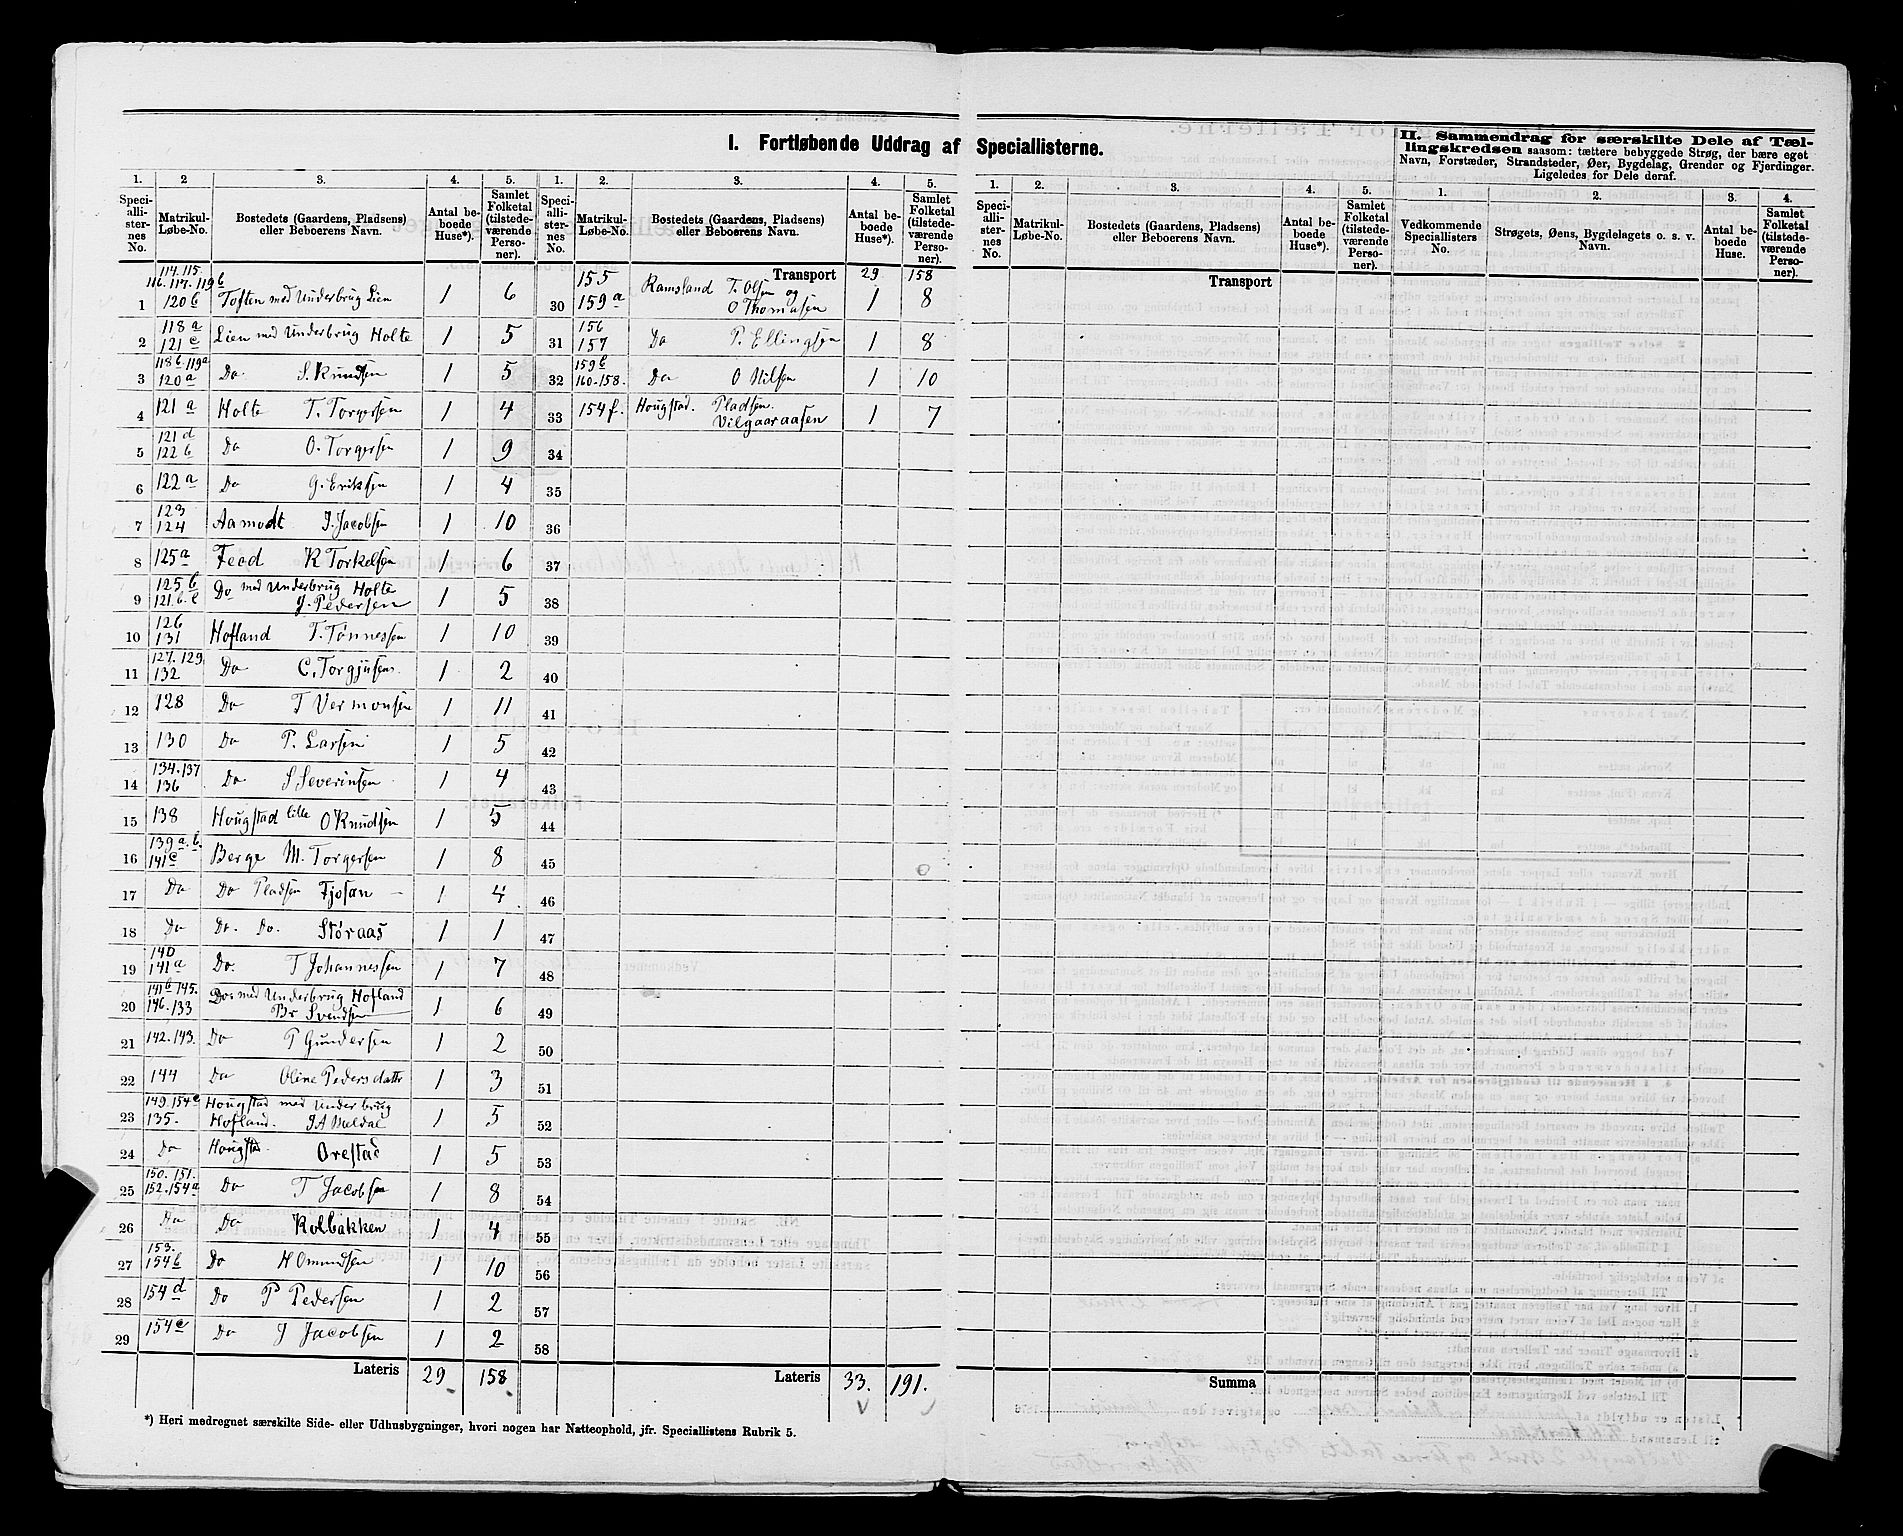 I. Fortløbende Uddrag af Speciallisterne.
II. Sammendrag for særskilte Dele af Tællingskredsen saasom: tættere bebyggede Strøg, der bære eget Navn, Forstæder, Strandsteder, Øer, Bygdelag, Grender og Fjerdinger. Ligeledes for Dele deraf.
1. 2 3. 4. 5. 1. 2. 3. 4. 5. 1. 2. 3. 4. 5. 1. 2. 3. 4.
Speciallisternes No. Matrikul-Løbe-No. Bostedets (Gaardens, Pladsens) eller Beboerens Navn. Antal beboede Huse*). Samlet Folketal (tilstedeværende Personer).
Speciallisternes No. Matrikul-Løbe-No. Bostedets (Gaardens, Pladsens) eller Beboerens Navn. Antal beboede Huse*). Samlet Folketal (tilstedeværende Personer).
Speciallisternes No. Matrikul-Løbe-No. Bostedets (Gaardens, Pladsens) eller Beboerens Navn. Antal beboede Huse*). Samlet Folketal (tilstedeværende Personer).
Vedkommende Speciallisters No. Strøgets, Øens, Bygdelagets o. s. v. Navn. Antal beboede Huse. Samlet Folketal (tilstedeværende Personer).
114. 115.
116. 117. 119b
1 120b Toften med Underbrug Lien 1 6
118a
2 121c Lien med Underbrug Holte 1 5
118b. 119a
3 120a Do. S. Knudsen 1 5
4 121a Holte T. Torgersen 1 4
121d
5 122b Do O. Torgersen 1 9
6 122a Do G. Eriksen 1 4
123
7 124 Aamodt J. Jacobsen 1 10
8 125a Feed K Torkelsen 1 6
125b Do med Underbrug Holte
9 121.b.e J. Pedersen 1 5
126
10 131 Hofland T. Tønnessen 1 10
127. 129
11 132 Do C. Torgjusen 1 2
12 128 Do T Vermonsen 1 11
13 130 Do P. Larsen 1 5
134. 137
14 136 Do S Severinsen 1 4
15 138 Hougstad lille O Knudsen 1 5
139a.b.
16 141c Berge M. Torgersen 1 8
17 Do Do Pladsen Fjosan 1 4
18 Do Do. Do. Støraas 1 1
140
19 141a Do. T Johannessen 1 7
141b 145. Do med Underbrug Hofland
20 146. 133 Br Svendsen 1 6
21 142. 143. Do P Gundersen 1 2
22 144 Do Oline Pedersdattr 1 3
149. 154c Hougstad med Underbrug
23 135. Hofland. J A Meldal 1 5
24 Do Hougstad. Orestad 1 5
150. 151.
25 152. 154a Do T Jacobsen 1 8
26 Do Do Kolbakken 1 4
153.
27 154b Do H Omundsen 1 10
28 154d Do P Pedersen 1 2
29 154e Do J Jacobsen 1 2
Lateris 29 158
Transport 29 158
155 Ramsland T. Olsen og
30 159a O Thomasen 1 8
156
31 157 Do P. Ellingsen 1 8
159b
32 160-158. Do O Nilsen 1 10
33 154f. Hougstad. Pladsen. Vilgaaraasen 1 7
34
35
36
37
38
39
40
41
42
43
44
45
46
47
48
49
50
51
52
53
54
55
56
57
58
Lateris 33. 191.
Transport
Summa
*) Heri medregnet særskilte Side- eller Udhusbygninger, hvori nogen har Natteophold, jfr. Speciallistens Rubrik 5.